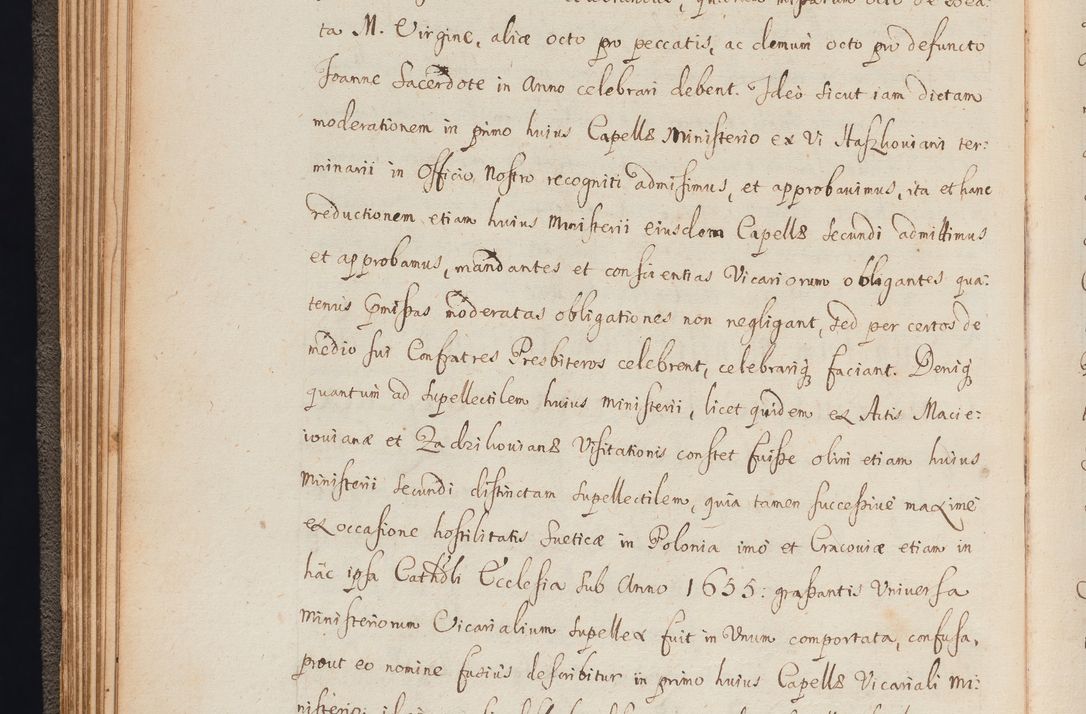 ta M. Virgine, aliæ octo pro peccatis, ac demum octo pro defuncto
Joanne Sacerdote in Anno celebrari debent. Ideò sicut iam dictam
moderationem in primo huius Capellæ Ministerio ex Vi Staszkoviani ter:
minarii in Officio Nostro recogniti admisimus, et approbavimus, ita et hanc
reductionem etiam huius Ministerii eiusdem Capellæ Secundi admittimus
et approbamus, mandantes et conscientias Vicariorum obligantes qua:
tenus pmissas moderatas obligationes non negligant, sed per certos de
medio sui Confratres Presbiteros celebrent, celebrariq faciant. Deniq
quantum ad supellectilem huius Ministerii, licet quidem ex Actis Macie:
iovianæ et Zadzikovianæ Visitationis constet fuisse olim etiam huius
Ministerii Secundi distinctam supellectilem, quia tamen successivè maximè
ex occasione hostilitatis Sueticæ in Polonia imò et Cracoviæ etiam in
hâc ipsa Cathdli Ecclesia sub Anno 1655: grassantis Universa
Ministeriorum Vicarialium supellex fuit in Unum comportata, confusa,
prout eo nomine fusiùs describitur in primo huius Capellæ Vicariali Mi:
nisterio: